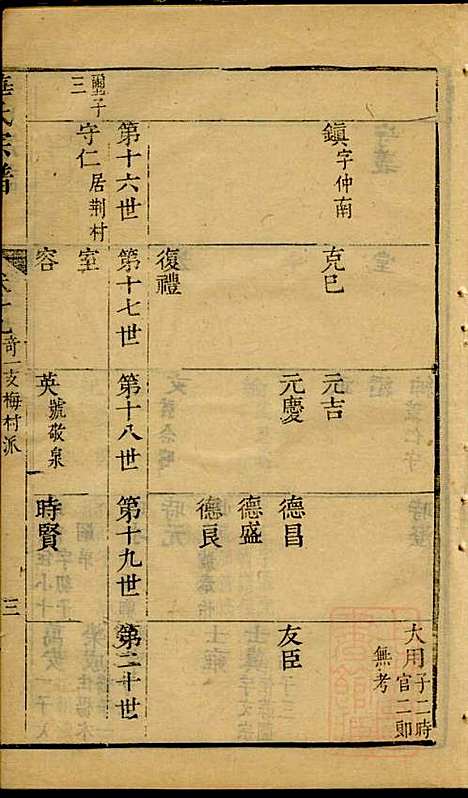 大用子二時官二郎
無考
鎮字仲南
克巳
元吉
元慶
德昌
友臣
德盛
復禮
德良
第十六世
第十七世
第十八世
第十九世
第二十世
子
守仁居荆村
室
三
容
英號敬泉
時賢
氏宗譜
奇一支梅村派
三